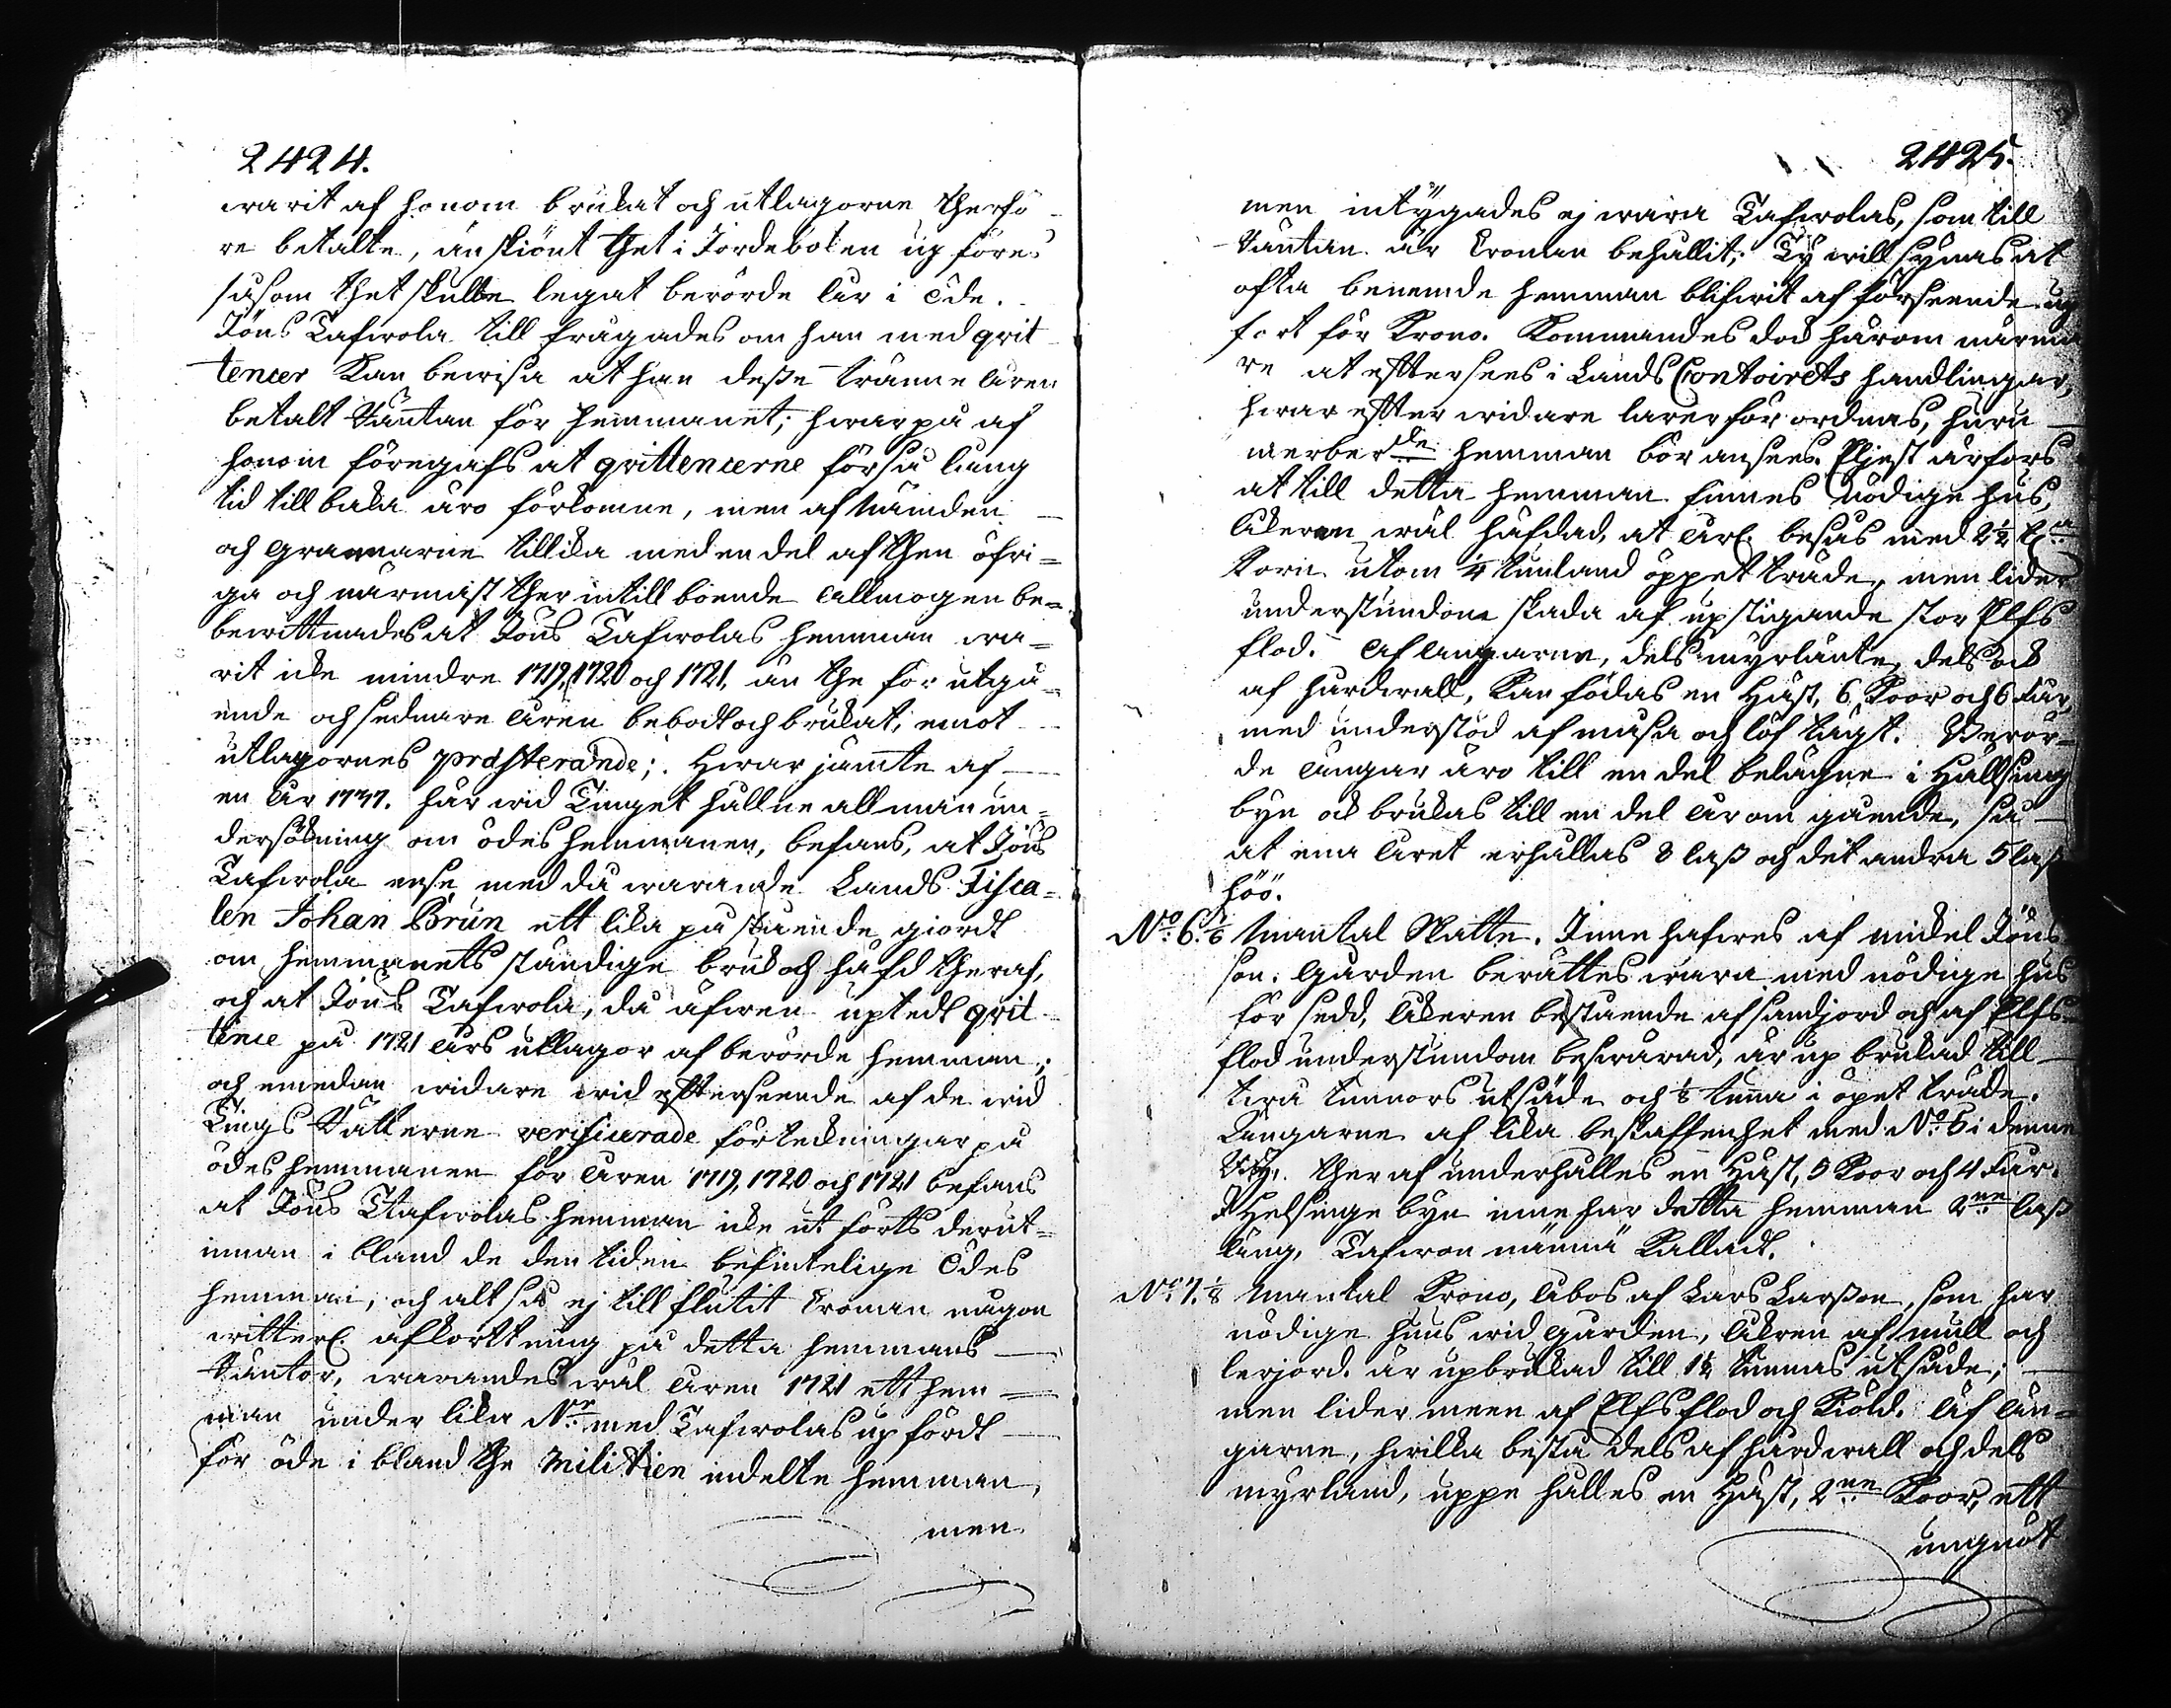 2424.
warit af honom brukat och utlagorne therfö
re betalte, än skiönt thet i Jordeboken up föres
såsom thet skulle legat berörde åhr i öde.
Jöns Tafwola till frågades om han med qvit
tencer Kan bewisa at han deße tränne åren
betalt Räntan för hemmanet; hwarpå af
honom föregafs at qvittencerne för så lång
tid till baka äro förkomne, men af Nämden
och Grannarne tillika med en del af then öfri=
ga och närmast ther intill boende Allmogen be=
bewittnades at Jöns Tafwolas hemman wa=
rit icke mindre 1719, 1720 och 1721, än the för utgå
ende och sednare åren bebodt och brukat, emot
utlagornes præsterande; Hwar jämte af
en åhr 1737. här wid Tinget hållne allmän un=
dersökning om ödes hemmanen, befans, at Jöns
Tafwola ense med då warande Lands Fisca=
len Johan Brun ett lika på stående giordt
om hemmanets ständige bruk och häfd theraf,
och at Jöns Tafwola, då äfwen uptedt qvit
tence på 1721 åhrs utlagor af berörde hemman;
och emedan widare wid efterseende af de wid
Tings Rätterne verificerade förteckningar på
ödes hemmanen för åren 1719, 1720 och 1721 befans
at Jöns Tafwolas hemman icke ut förts derut=
innan i bland de den tiden befintelige Ödes
hemman, och alt så ej till flutit Cronan någon
witterl. afkorttning på detta hemmans
Räntor, warandes wäl åren 1721 ett hem=
man under lika N:r med Tafwolas up fördt
för öde i bland the Militien indelte hemman,
men
2425.
men intygades ej wara Tafwolas, som till
Räntan är Cronan behållit; Ty will synas at
ofta benemde hemman blifwit af förseende up
fört för Krono. Kommandes dock härom närma
re at efttersees i Lands Contoirets handlingar,
hwar eftter widare lärer för ordnas, huru
merber:de hemman bör ansees. Eljest ärfors
at till detta hemman finnes Nödige hus,
Åkeren wäl häfdad, at årl. besås med 2½ t:a
Korn utom ¼ tunland öppet träde, men lider
understundom skada af upstigande stor Elfs
flod. Af Ängarne, dels myrländte, dels ock
af hårdwall, Kan födas en Häst, 6 Koor och 6 Får,
med understöd af måsa och löf tägt. Berör=
de ängar äro till en del belägne i Hällsing
byn och brukas till en del åhr om gående, så
at ena året erhålles 8 laß och det andra 5 laß
höö.
N:o 6. Mantal Skatte. Inne hafwes af Mickel Jöns
son. Gården berättes wara med nödige hus
för sedd, Åkeren bestående af sandjord och af Elfs=
flod understundom beswärad, är up brukad till
twå tunnors utsäde och ⅛ tunna i öpet träde.
Ängarne af lika beskaffenhet med N:o 6 i denne
By. ther af underhålles en Häst, 5 Koor och 4 Får.
I Helsinge byn inne har detta hemman 2:ne laß
äng, Tafwon nännä Kalladt.
N:o 7. ⅛ Mantal Krono, åbos af Lars Larßon, som har
nödige huus wid Gården, Åkren af mull och
lerjord. är upbrukad till 1½ tunnas utsäde;
men lider meen af Elfs flod och Kiöld. Af Än=
garne, hwilka bestå dels af hårdwall och dels
myrland, uppe hålles en Häst, 2:ne Koor, ett
ungnöt